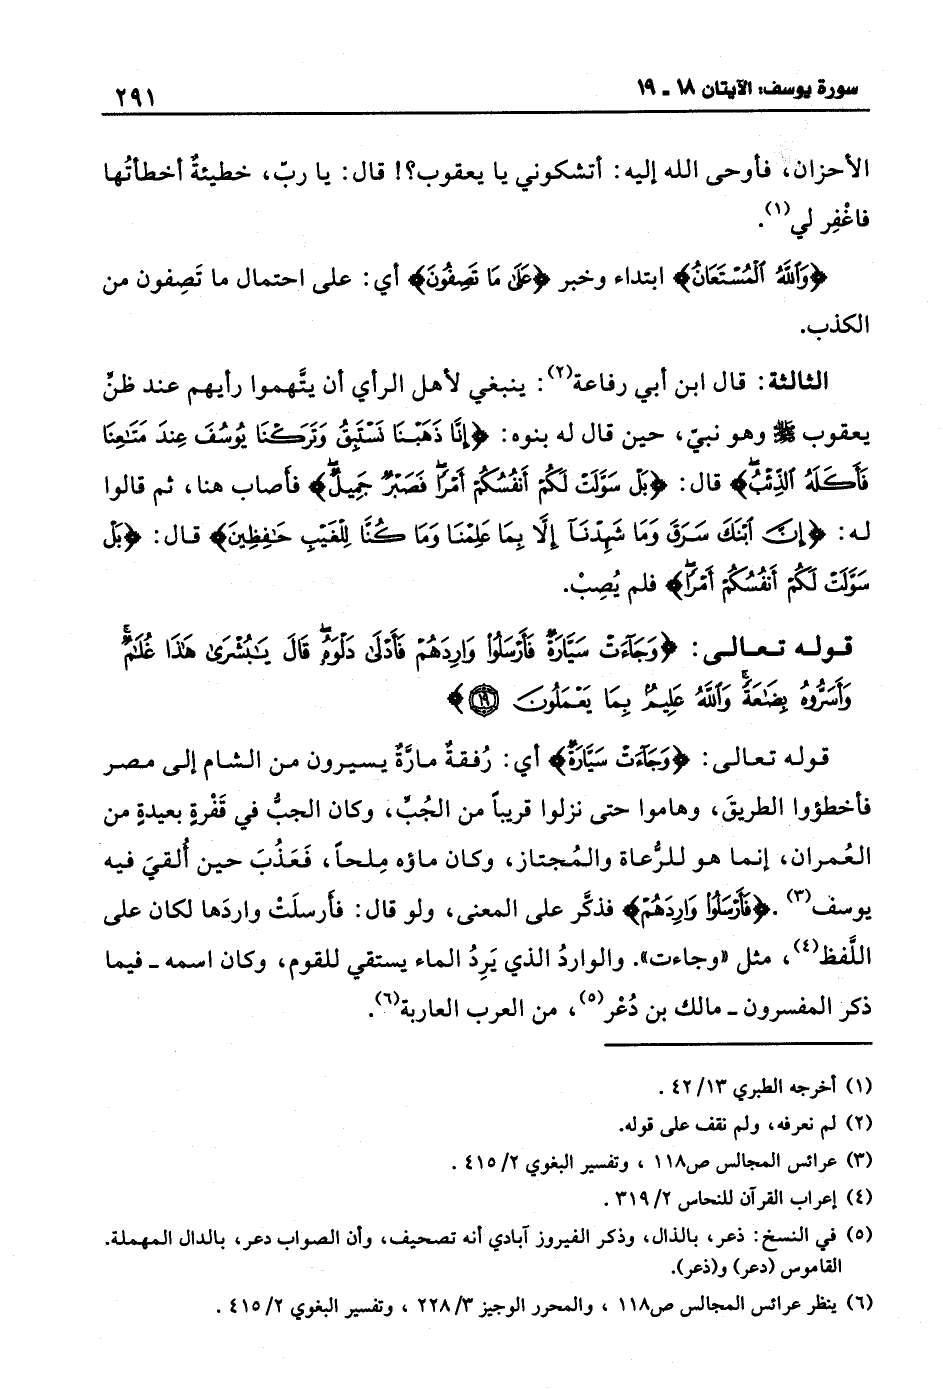 سورة يوسف: الآيتان ١٨ ـ ١٩
٢٩١
الأحزان، فأوحى الله إليه: أتشكوني يا يعقوب؟! قال: يا ربّ، خطيئةٌ أخطأتُها
فاغْفِر لي(١).
﴿وَاللَّهُ الْمُسْتَعَانُ﴾ ابتداء وخبر ﴿عَلَىٰ مَا تَصِفُونَ﴾ أي: على احتمال ما تَصِفون من
الكذب.
الثالثة: قال ابن أبي رفاعة(٢): ينبغي لأهل الرأي أن يتَّهموا رأيهم عند ظنِّ
يعقوب ﷺ وهو نبيّ، حين قال له بنوه: ﴿إِنَّا ذَهَبْنَا نَسْتَبِقُ وَتَرَكْنَا يُوسُفَ عِندَ مَتَاعِنَا
فَأَكَلَهُ الذِّئْبُ﴾ قال: ﴿بَلْ سَوَّلَتْ لَكُمْ أَنفُسُكُمْ أَمْرًا فَصَبْرٌ جَمِيلٌ﴾ فأصاب هنا، ثم قالوا
له: ﴿إِنَّ ابْنَكَ سَرَقَ وَمَا شَهِدْنَا إِلَّا بِمَا عَلِمْنَا وَمَا كُنَّا لِلْغَيْبِ حَافِظِينَ﴾ قال: ﴿بَلْ
سَوَّلَتْ لَكُمْ أَنفُسُكُمْ أَمْرًا﴾ فلم يُصِبْ.
قوله تعالى: ﴿وَجَاءَتْ سَيَّارَةٌ فَأَرْسَلُوا وَارِدَهُمْ فَأَدْلَىٰ دَلْوَهُ قَالَ يَا بُشْرَىٰ هَٰذَا غُلَامٌ
وَأَسَرُّوهُ بِضَاعَةً وَاللَّهُ عَلِيمٌ بِمَا يَعْمَلُونَ ١٩﴾
قوله تعالى: ﴿وَجَاءَتْ سَيَّارَةٌ﴾ أي: رُفقةٌ مارَّةٌ يسيرون من الشام إلى مصر
فأخطؤوا الطريقَ، وهاموا حتى نزلوا قريباً من الجُبِّ، وكان الجبُّ في قَفْرةٍ بعيدةٍ من
العُمران، إنما هو للرُّعاة والمُجتاز، وكان ماؤه مِلحاً، فَعَذُبَ حين أُلقيَ فيه
يوسف(٣). ﴿فَأَرْسَلُوا وَارِدَهُمْ﴾ فذكَّر على المعنى، ولو قال: فأرسلَتْ واردَها لكان على
اللَّفظ(٤)، مثل «وجاءت». والواردُ الذي يَرِدُ الماء يستقي للقوم، وكان اسمه ـ فيما
ذكر المفسرون ـ مالك بن دُعْر(٥)، من العرب العاربة(٦).
(١) أخرجه الطبري ١٣/ ٤٢ .
(٢) لم نعرفه، ولم نقف على قوله.
(٣) عرائس المجالس ص١١٨ ، وتفسير البغوي ٢/ ٤١٥ .
(٤) إعراب القرآن للنحاس ٢/ ٣١٩ .
(٥) في النسخ: ذعر، بالذال، وذكر الفيروز آبادي أنه تصحيف، وأن الصواب دعر، بالدال المهملة.
القاموس (دعر) و(ذعر).
(٦) ينظر عرائس المجالس ص١١٨ ، والمحرر الوجيز ٣/ ٢٢٨ ، وتفسير البغوي ٢/ ٤١٥ .